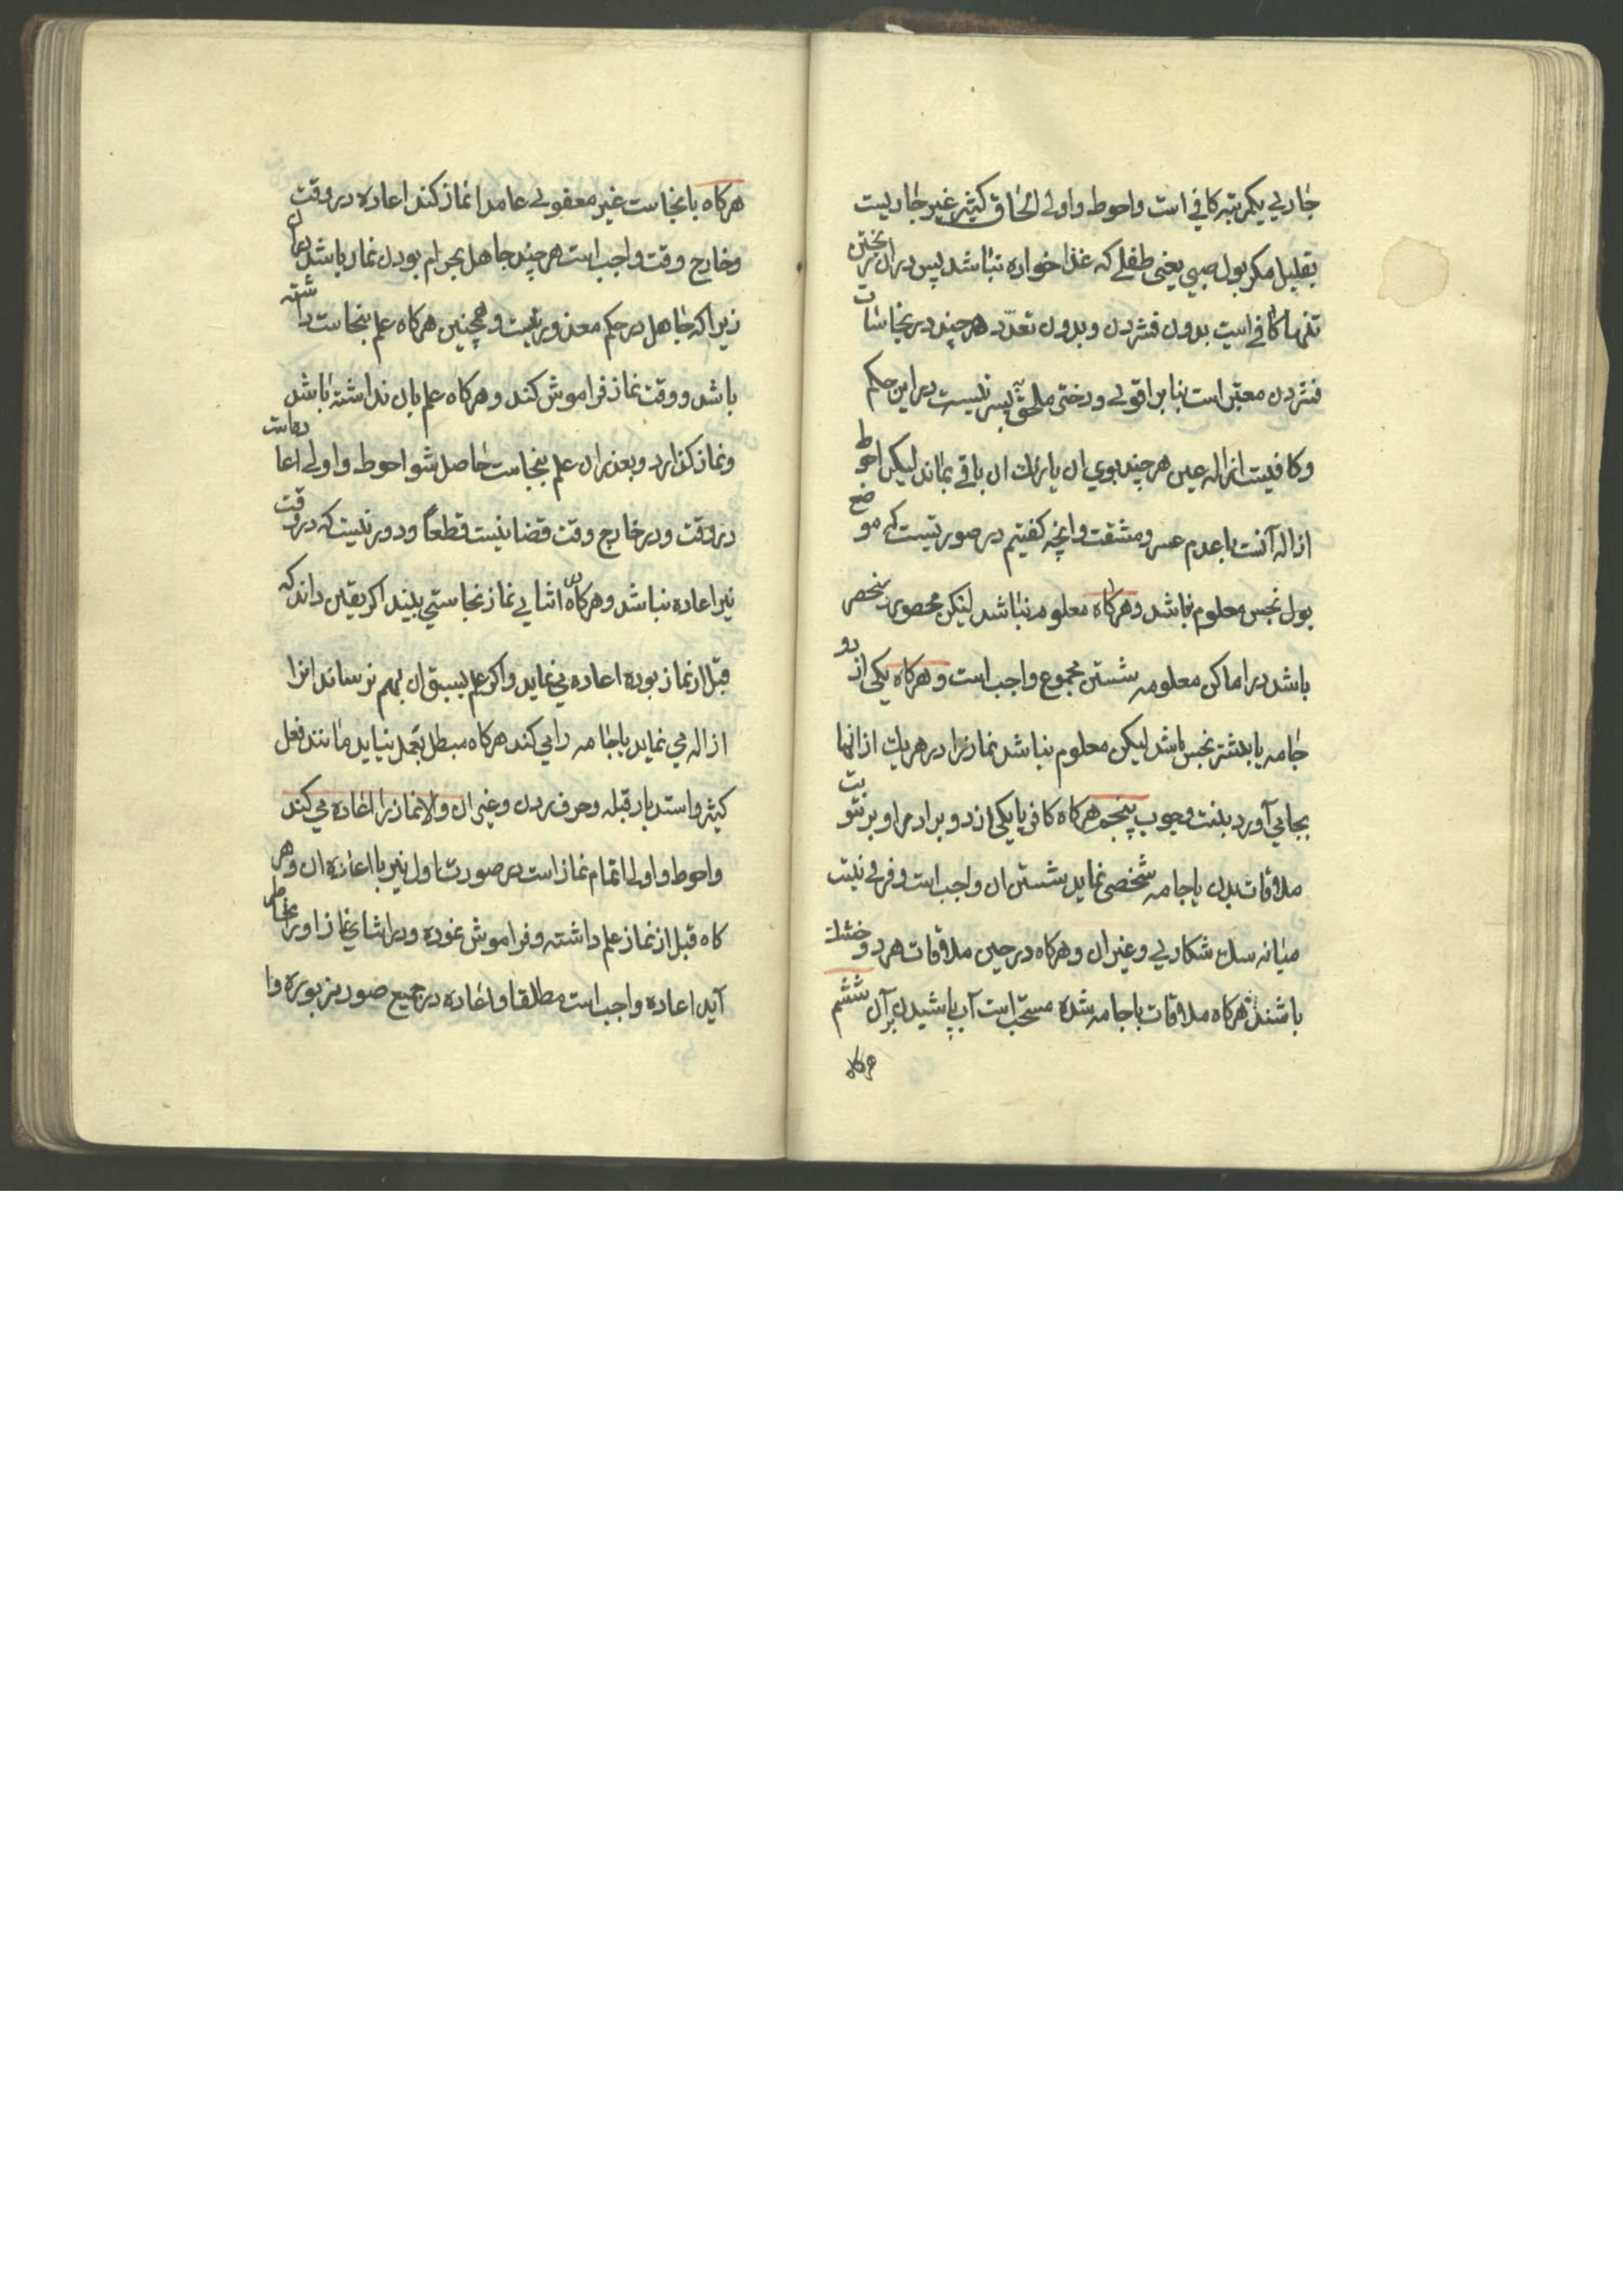 جاری یکمرتبه کافی است واحوط واولی الحاق کثیر غیر جاریست
بقلیل مکر بول صبی یعنی طفلی که غذا خواره نباشد پس در ان ریختن
تنها کافی است بدون فشردن وبدون تعدّد هرچند در نجاسات
فشردن معتبر است بنابر اقوی ودختر ملحق بپسر نیست در این حکم
وکافیست ازاله عین هرچند بوی ان یا رنك ان باقی بماند لیکن احوط
ازاله آنست با عدم عسر ومشقت وانچه کفتیم در صورتیست که موضع
بول نجس معلوم باشد وهرکاه معلوم نباشد لیکن محصور ومنحصر
باشد در اماکن معلومه شستن مجموع واجب است وهرکاه یکی از دو
جامه یا بیشتر نجس باشد لیکن معلوم نباشد نماز را در هریك از انها
بجا می آورد بنیت وجوب پنجم هرکاه کافر یا یکی از دو برادر او برطوبت
ملاقات بدن یا جامه شخصی نماید شستن ان واجب است وفرقی نیست
میانه سك شکاری وغیر ان وهرکاه در حین ملاقات هردو خشك
باشند هرکاه ملاقات با جامه شده مستحب است آب پاشیدن بر آن ششم
هرکاه
هرکاه با نجاست غیر معفو عامدا نماز کند اعاده در وقت
وخارج وقت واجب است هرچند جاهل بحرام بودن نماز باشد با ان
زیرا که جاهل در حکم معذور نیست وهمچنین هرکاه علم بنجاست داشته
باشد ووقت نماز فراموش کند وهرکاه علم بان نداشته باشد
ونماز کذارد وبعد از ان علم بنجاست حاصل شود احوط واولی اعاده است
در وقت ودر خارج وقت قضا نیست قطعًا ودور نیست که در وقت
نیز اعاده نباشد وهرکاه در اثنای نماز نجاستی بیند اکر یقین داند که
قبل از نماز بوده اعاده می نماید واکر علم بسبق ان بهم نرساند انرا
ازاله می نماید یا جامه را می کند هرکاه مبطل بعمل نیاید مانند فعل
کثیر واستدبار قبله وحرف زدن وغیر ان والا نماز را اعاده می کند
واحوط واولی اتمام نماز است در صورت اول نیز با اعاده ان وهر
کاه قبل از نماز علم داشته وفراموش نموده ودر اثنای نماز او را بخاطر
آید اعاده واجب است مطلقا واعاده در جمیع صور مزبوره وا